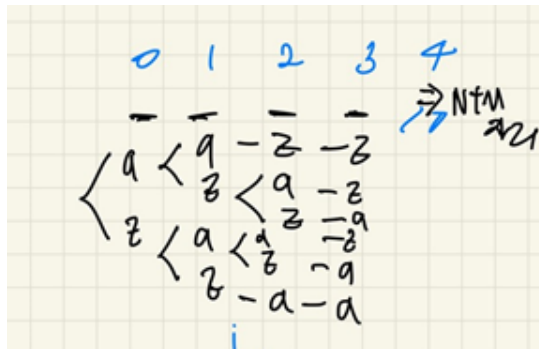 0 1 2 3 4
_ _ _ _ ⇒ N+M
a < a - z - z
z < a - z
z - a
z < a < a - z
z - a
z - a - a
i